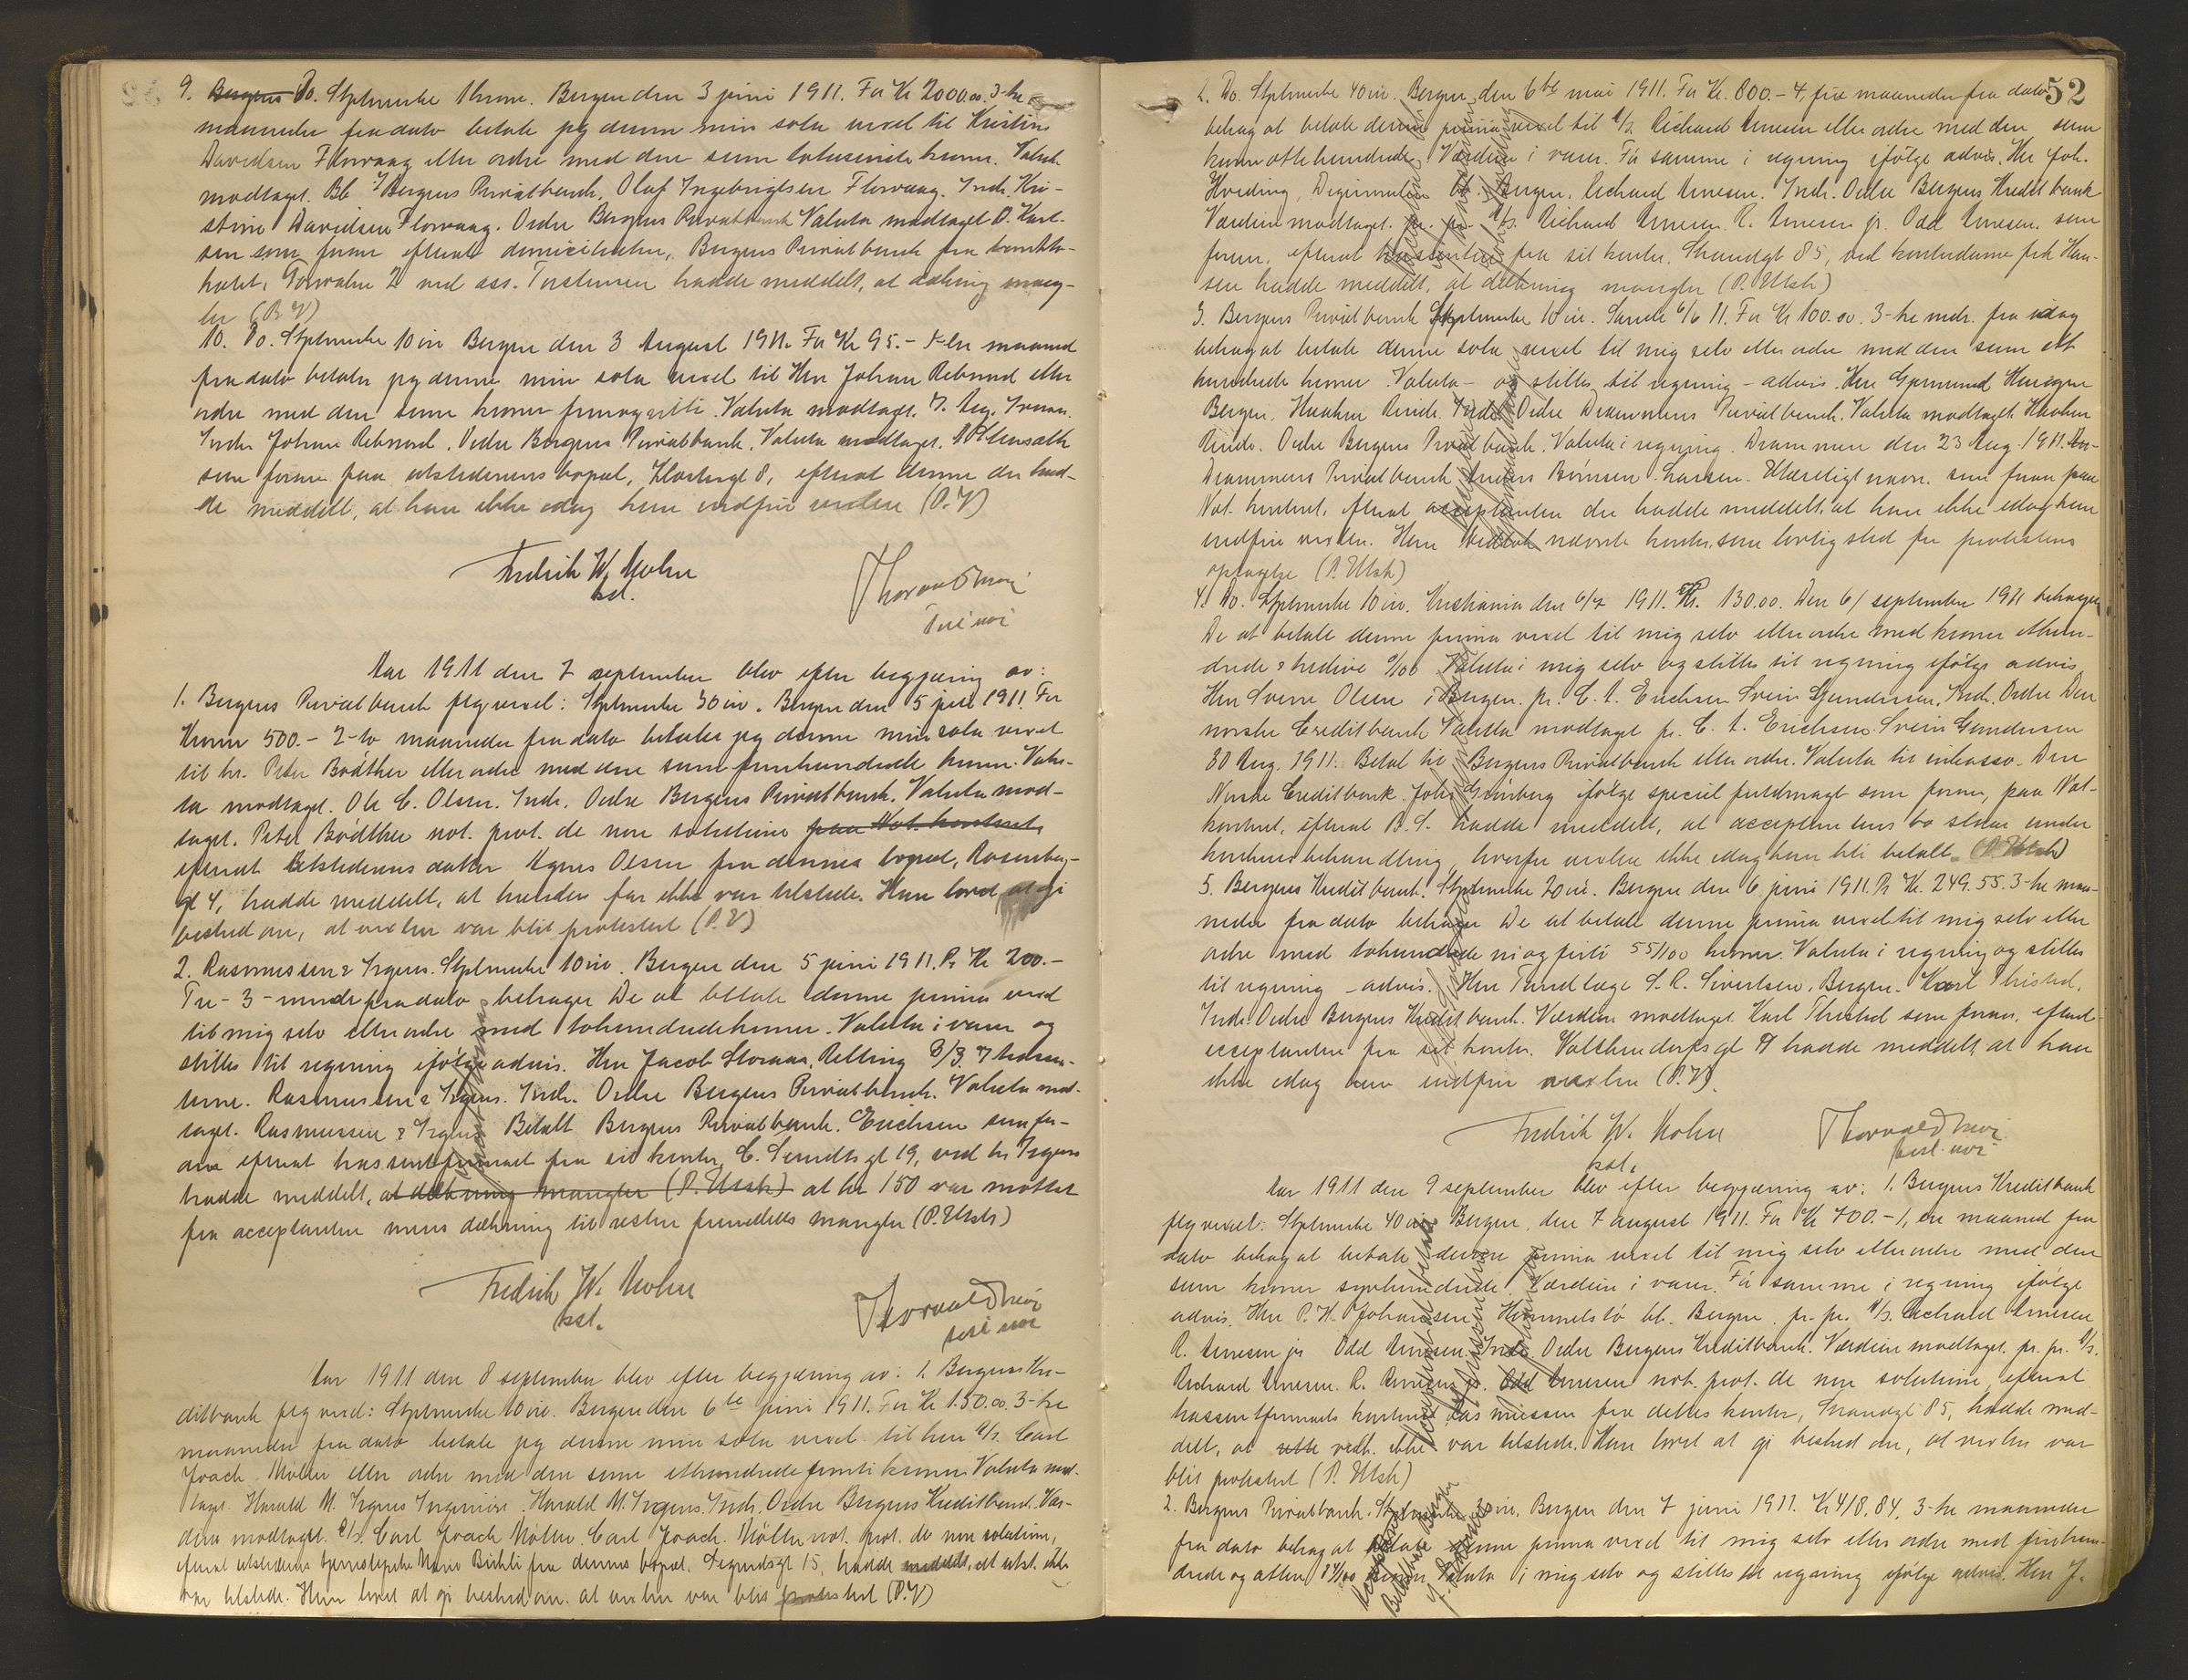 9. Bergens Do. Stplmerke 1 krone. Bergen den 3 juni 1911. For Kr 2000.00. 3-tre
maaneder fra dato betale jeg denne min sola vexel til Kristine
Davidsen Florvaag eller ordre med den sum totusinde kroner. Valuta
modtaget. Bb Bergens Privatbank. Olaf Ingebrigtsen Florvaag. Indr. Kri-
stine Davidsen Florvaag. Ordre Bergens Privatbank Valuta modtaget
sen som foran efterat domiciliaten, Bergens Privatbank fra banklo-
kalet, Torvalm 2 ved ass. Torstensen hadde meddelt, at dækning mang-
ler (P.V)
10. Do. Stplmerke 10 øre Bergen den 3 August 1911. For Kr 95.- 1-en maaned
fra dato betaler jeg denne min sola vexel til Herr Johan Rebnord eller
ordre med den sum kroner femognitti. Valuta modtaget.
Indr. Johan Rebnord. Ordre Bergens Privatbank. Valuta modtaget.
som foran paa utstederens bopæl, Klostergt 8, efterat denne der had-
de meddelt, at han ikke idag kan indfri vexlen (P.V)
Fredrik W. Mohn
kst.
Aar 1911 den 7 september blev efter begjæring av:
1. Bergens Privatbank flg vexel: Stplmerke 30 øre. Bergen den 5 juli 1911. For
Kroner 500.- 2-to maaneder fra dato betaler jeg denne min sola vexel
til hr. Peter Bødtker eller ordre med den sum femhundrede kroner. Valu-
ta modtaget. Ole C. Olsen. Indr. Ordre Bergens Privatbank. Valuta mod-
taget. Peter Bødtker not. prot. de non solutione paa Not. kontoret,
efterat utstederens datter Agnes Olsen fra dennes bopæl, Rosenberg-
gt 4, hadde meddelt, at hendes far ikke var tilstede. Hun lovet at gi
besked om, at vexlen var blit protestert (P.V)
2. Rasmussen & Irgens. Stplmerke 10 øre. Bergen den 5 juni 1911. Pr Kr 200.-
Tre-3-mndr fra dato behager De at betale denne prima vexel
til mig selv eller ordre med tohundredekroner. Valuta i varer og
stilles til regning ifølge advis. Herr Jacob Storaas, Relling
Rasmussen & Irgens. Indr. Ordre Bergens Privatbank. Valuta mod-
taget. Rasmussen & Irgens Betalt Bergens Privatbank. Erichsen som for-
an efterat trassentfirmaet fra sit kontor, C. Sundts gt 19, ved hr Irgens
hadde meddelt, at dækning mangler (P. Utsk) at kr 150 var mottat
fra acceptanten mens dækning til resten fremdeles mangler (P. Utsk)
Fredrik W. Mohn
kst.
Aar 1911 den 8 september blev efter begjæring av: 1. Bergens Kre-
ditbank flg vexel: Stplmerke 10 øre. Bergen den 6te juni 1911. For Kr 150.00. 3-tre
maaneder fra dato betale jeg denne min sola vexel til herr A/S. Carl
Joach. Møller eller ordre med den sum ethundredefemti kroner. Valuta mod-
taget. Harald M. Irgens Ingeniør. Harald M. Irgens. Indr. Ordre Bergens Kreditbank. Vær-
dien modtaget. A/S. Carl Joach Møller. Carl Joach. Møller not. prot. de non solutione,
efterat utstederens tjenestepike Marie Birkeli fra dennes bopæl, Sigurdsgt 15, hadde meddelt, at utst. ikke
var tilstede. Hun lovet at gi besked om, at vexlen var blit protestert (P.V)
52
2. Do. Stplmerke 40 øre. Bergen, den 6te mai 1911. For Kr. 800.- 4, fire maaneder fra dato
behag at betale denne prima vexel til A/S. Richard Arnesen eller ordre med den sum
kroner ottehundrede. Værdien i varer. Før samme i regning ifølge advis. Hr Joh.
Hveding, Bergen. Richard Arnesen. Indr. Ordre Bergens Kreditbank
Værdien modtaget. pr. pr. A/S. Richard Arnesen. R. Arnesen jr. Odd Arnesen. som
foran, efterat trassenten fra sit kontor, Strandgt 85, ved kontordame frk Han-
sen hadde meddelt, at dækning mangler (P. Utsk)
3. Bergens Privatbank Stplmerke 10 øre. Sande 6/6 11. For Kr 100.00. 3-tre mdr. fra idag
behag at betale denne sola vexel til mig selv eller ordre med den sum ett
hundrede kroner. Valuta - og stilles til regning - advis. Herr Gjermund
Bergen. Haakon Rinde. Indr. Ordre Drammens Privatbank. Valuta modtaget Haakon
Rinde. Ordre Bergens Privatbank. Valuta i regning. Drammen den 23 Aug. 1911. For
Drammens Privatbank Anders Børresen Larsen. Ulæseligt navn. som foran paa
Not. kontoret, efterat acceptanten der hadde meddelt, at han ikke idag kan
indfri vexlen. Han vedtok nævnte kontor som lovlig sted for protestens
optagelse (P. Utsk)
4. Do. Stplmerke 10 øre. Kristiania den 6/7 1911. Kr. 130.00. Den 6/ september 1911 behager
De at betale denne prima vexel til mig selv eller ordre med kroner ethun-
drede & tredive 0/100 Valuta i mig selv og stilles til regning ifølge advis
Herr Sverre Olsen i Bergen. pr. C. A. Erichsen Svein Gundersen. Indr. Ordre Den
norske Creditbank Valuta modtaget pr. C. A. Erichsen. Svein Gundersen
30 Aug. 1911. Betal til Bergens Privatbank eller ordre. Valuta til inkasso. Den
Norske Creditbank. Johs Grønberg ifølge speciel fuldmagt som foran, paa Not-
kontoret, efterat B.S. hadde meddelt, at acceptantens bo staar under
konkursbehandling, hvorfor vexlen ikke idag kan bli betalt. (P. Utsk)
5. Bergens Kreditbank. Stplmerke 20 øre. Bergen den 6 juni 1911. Pr Kr. 249.55. 3-tre maa-
neder fra dato behager De at betale denne prima vexel til mig selv eller
ordre med tohundrede niogførti 55/100 kroner. Valuta i regning og stilles
til regning - advis. Herr Tandlæge S. R. Sivertsen, Bergen. Karl Thisted.
Indr. Ordre Bergens Kreditbank. Værdien modtaget. Karl Thisted som foran, efterat
acceptanten fra sit kontor, Valkendorfsgt 9 hadde meddelt at han
ikke idag kan indfri vexlen (P.V).
Fredrik W. Mohn
kst.
Aar 1911 den 9 september blev efter begjæring av: 1. Bergens Kreditbank
flg vexel: Stplmerke 40 øre. Bergen, den 7 august 1911. For Kr 700.- 1, en maaned fra
dato behag at betale denne prima vexel til mig selv eller ordre med den
sum kroner syvhundrede. Værdien i varer. Før samme i regning ifølge
advis. Herr P. H. Johannesen Hommelstø bb. Bergen. pr. pr. A/S. Richard Arnesen
R. Arnesen jr Odd Arnesen. Indr. Ordre Bergens Kreditbank. Værdien modtaget. pr. pr. A/S.
Richard Arnesen. R. Arnesen jr. Odd Arnesen not. prot. de non solutione, efterat
trassentfirmaets kontorist Rasmussen fra dettes kontor, Strandgt 85, hadde med-
delt, at rette vedk. ikke var tilstede. Han lovet at gi besked om, at vexlen var
blit protestert (P. Utsk)
2. Bergens Privatbank. Stplmerke 30 øre. Bergen den 7 juni 1911. Kr 418,84, 3-tre maaneder
fra dato behag at betale denne prima vexel til mig selv eller ordre med firehun-
drede og atten 84/100 kroner Valuta i mig selv og stilles til regning ifølge advis. Herr J.